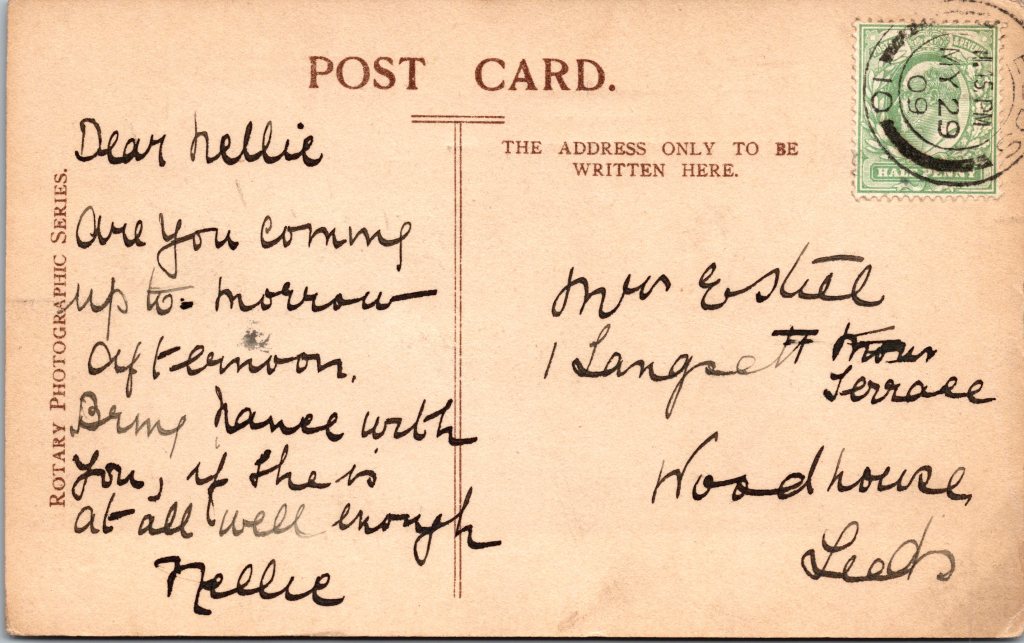 POST CARD.
THE ADDRESS ONLY TO BE
WRITTEN HERE.
ROTARY PHOTOGRAPHIC SERIES.
Dear Nellie
Are you coming
up to-morrow
afternoon.
Bring Nance with
you, if she is
at all well enough
Nellie
Mrs E Steel
1 Langsett
Terrace
Woodhouse
Leeds
4.15 PM
MY 29
09
10
HALFPENNY